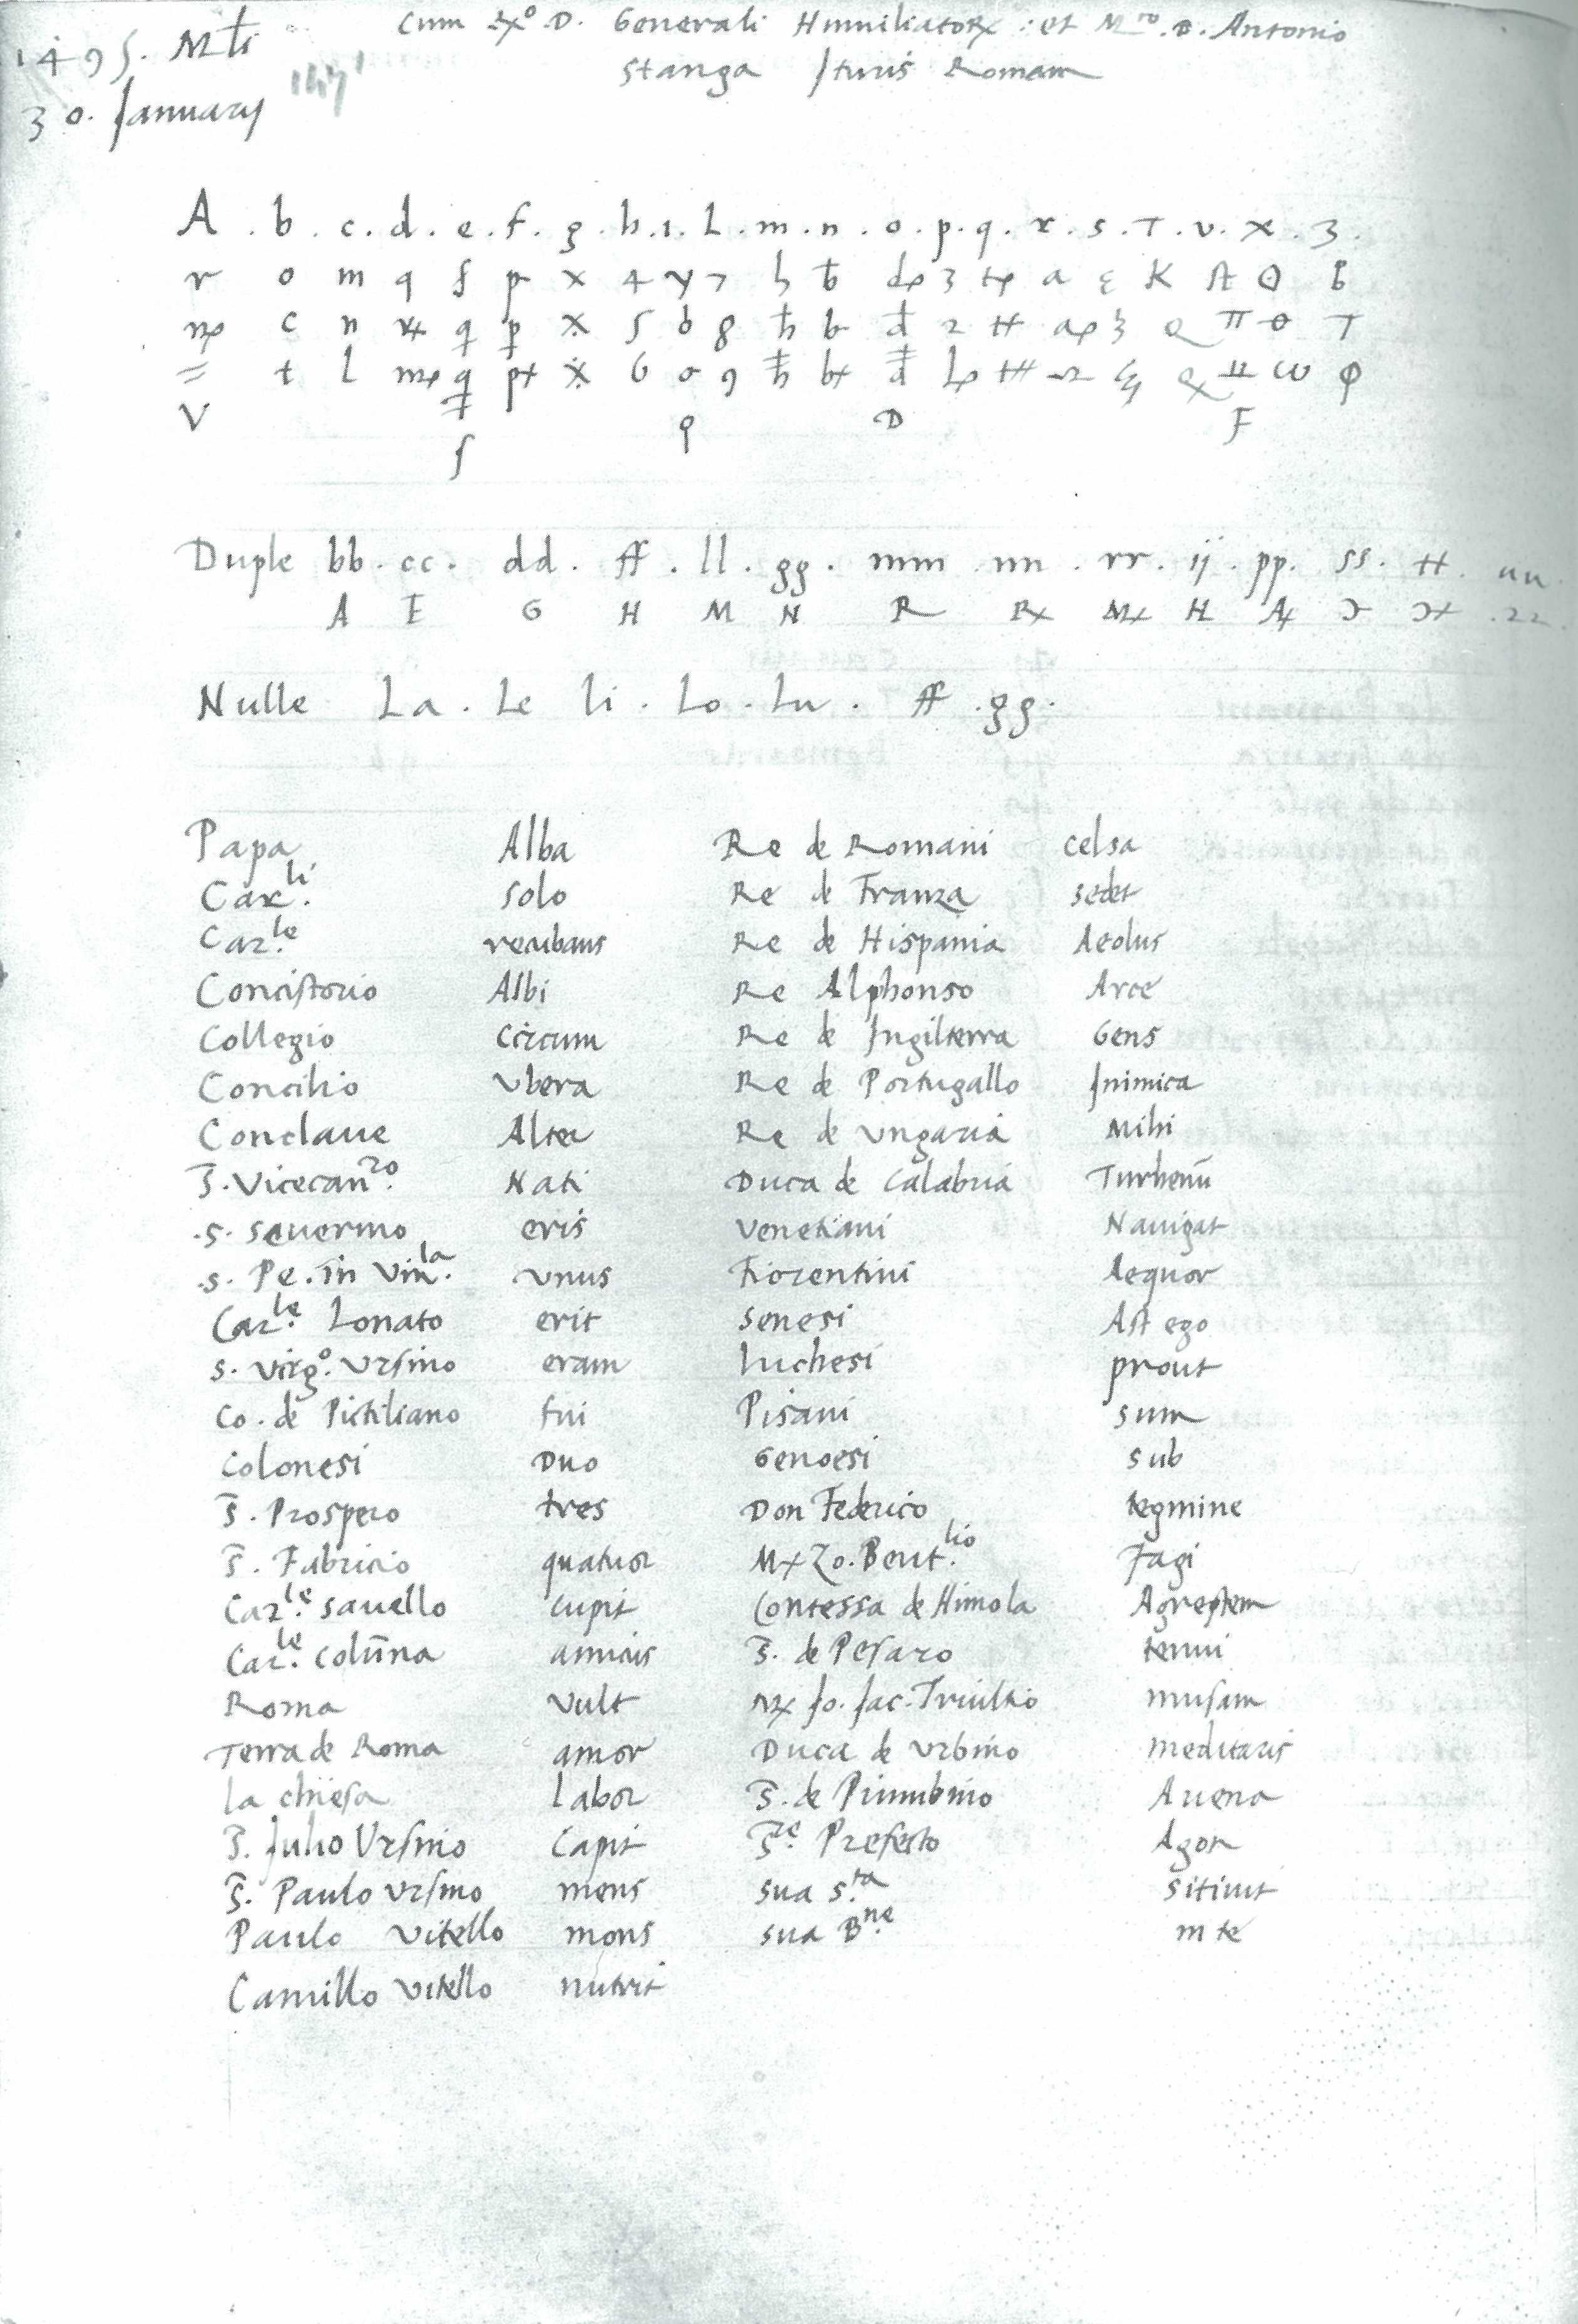 1495. Mli
30. January
Cum Exo D. Generali Humiliatorx : et Mro. D. Antonio
Stanga Ituris Romam
A . b . c . d . e . f . g . h . i . L . m . n . o . p . q . r . s . T . v . x . z .
r o m q f p x 4 y 7 h b 3 a K A O
c n q p x 5 6 8 h b d 2 # Q π θ T
= t L q x 6 σ 9 h d Q ω φ
V D F
ʃ
Duple bb . cc . dd . ff . ll . gg . mm . nn . rr . ij . pp . ss . tt . uu
A E G H M N R Rx Mx H 22
Nulle La . Le li . Lo . Lu . ff . gg .
Papa Alba Re de Romani celsa
Carli. solo Re de Franza sedet
Carle. recubans Re de Hispania Aeolus
Concistorio Albi Re Alphonso Arce
Collegio Circum Re de Ingilterra Gens
Concilio Vbera Re de Portugallo Inimica
Conclaue Alter Re de Vngaria Mihi
S. Vicecanro. Nati Duca de Calabria Turhenū
.S. Seuerino eris Venetiani Nauigat
.S. Pe. in Vinla. Vnus Fiorentini Aequor
Carle. Lonato erit Senesi Ast ego
S. Virgo. Vrsino eram Luchesi prout
Co. de Pictiliano fui Pisani sum
Colonesi Duo Genoesi sub
S. Prospero tres Don Federico tegmine
S. Fabricio quatuor Mx Zo. Bentlio. Fagi
Carle. Sauello cupit Contessa de Himola Agrestem
Carle. Colūna amicis S. de Pesaro tenui
Roma Vult Mx Jo. Jac. Triultio musam
Terra de Roma amor Duca de Vrbino meditaris
La chiesa Labor S. de Piumbino Auena
S. Julio Vrsino Capit Sre Prefecto Agon
S. Paulo Vrsino mens Sua Sta. sitiunt
Paulo Vitello mons Sua Bne. in te
Camillo Vitello nutrit